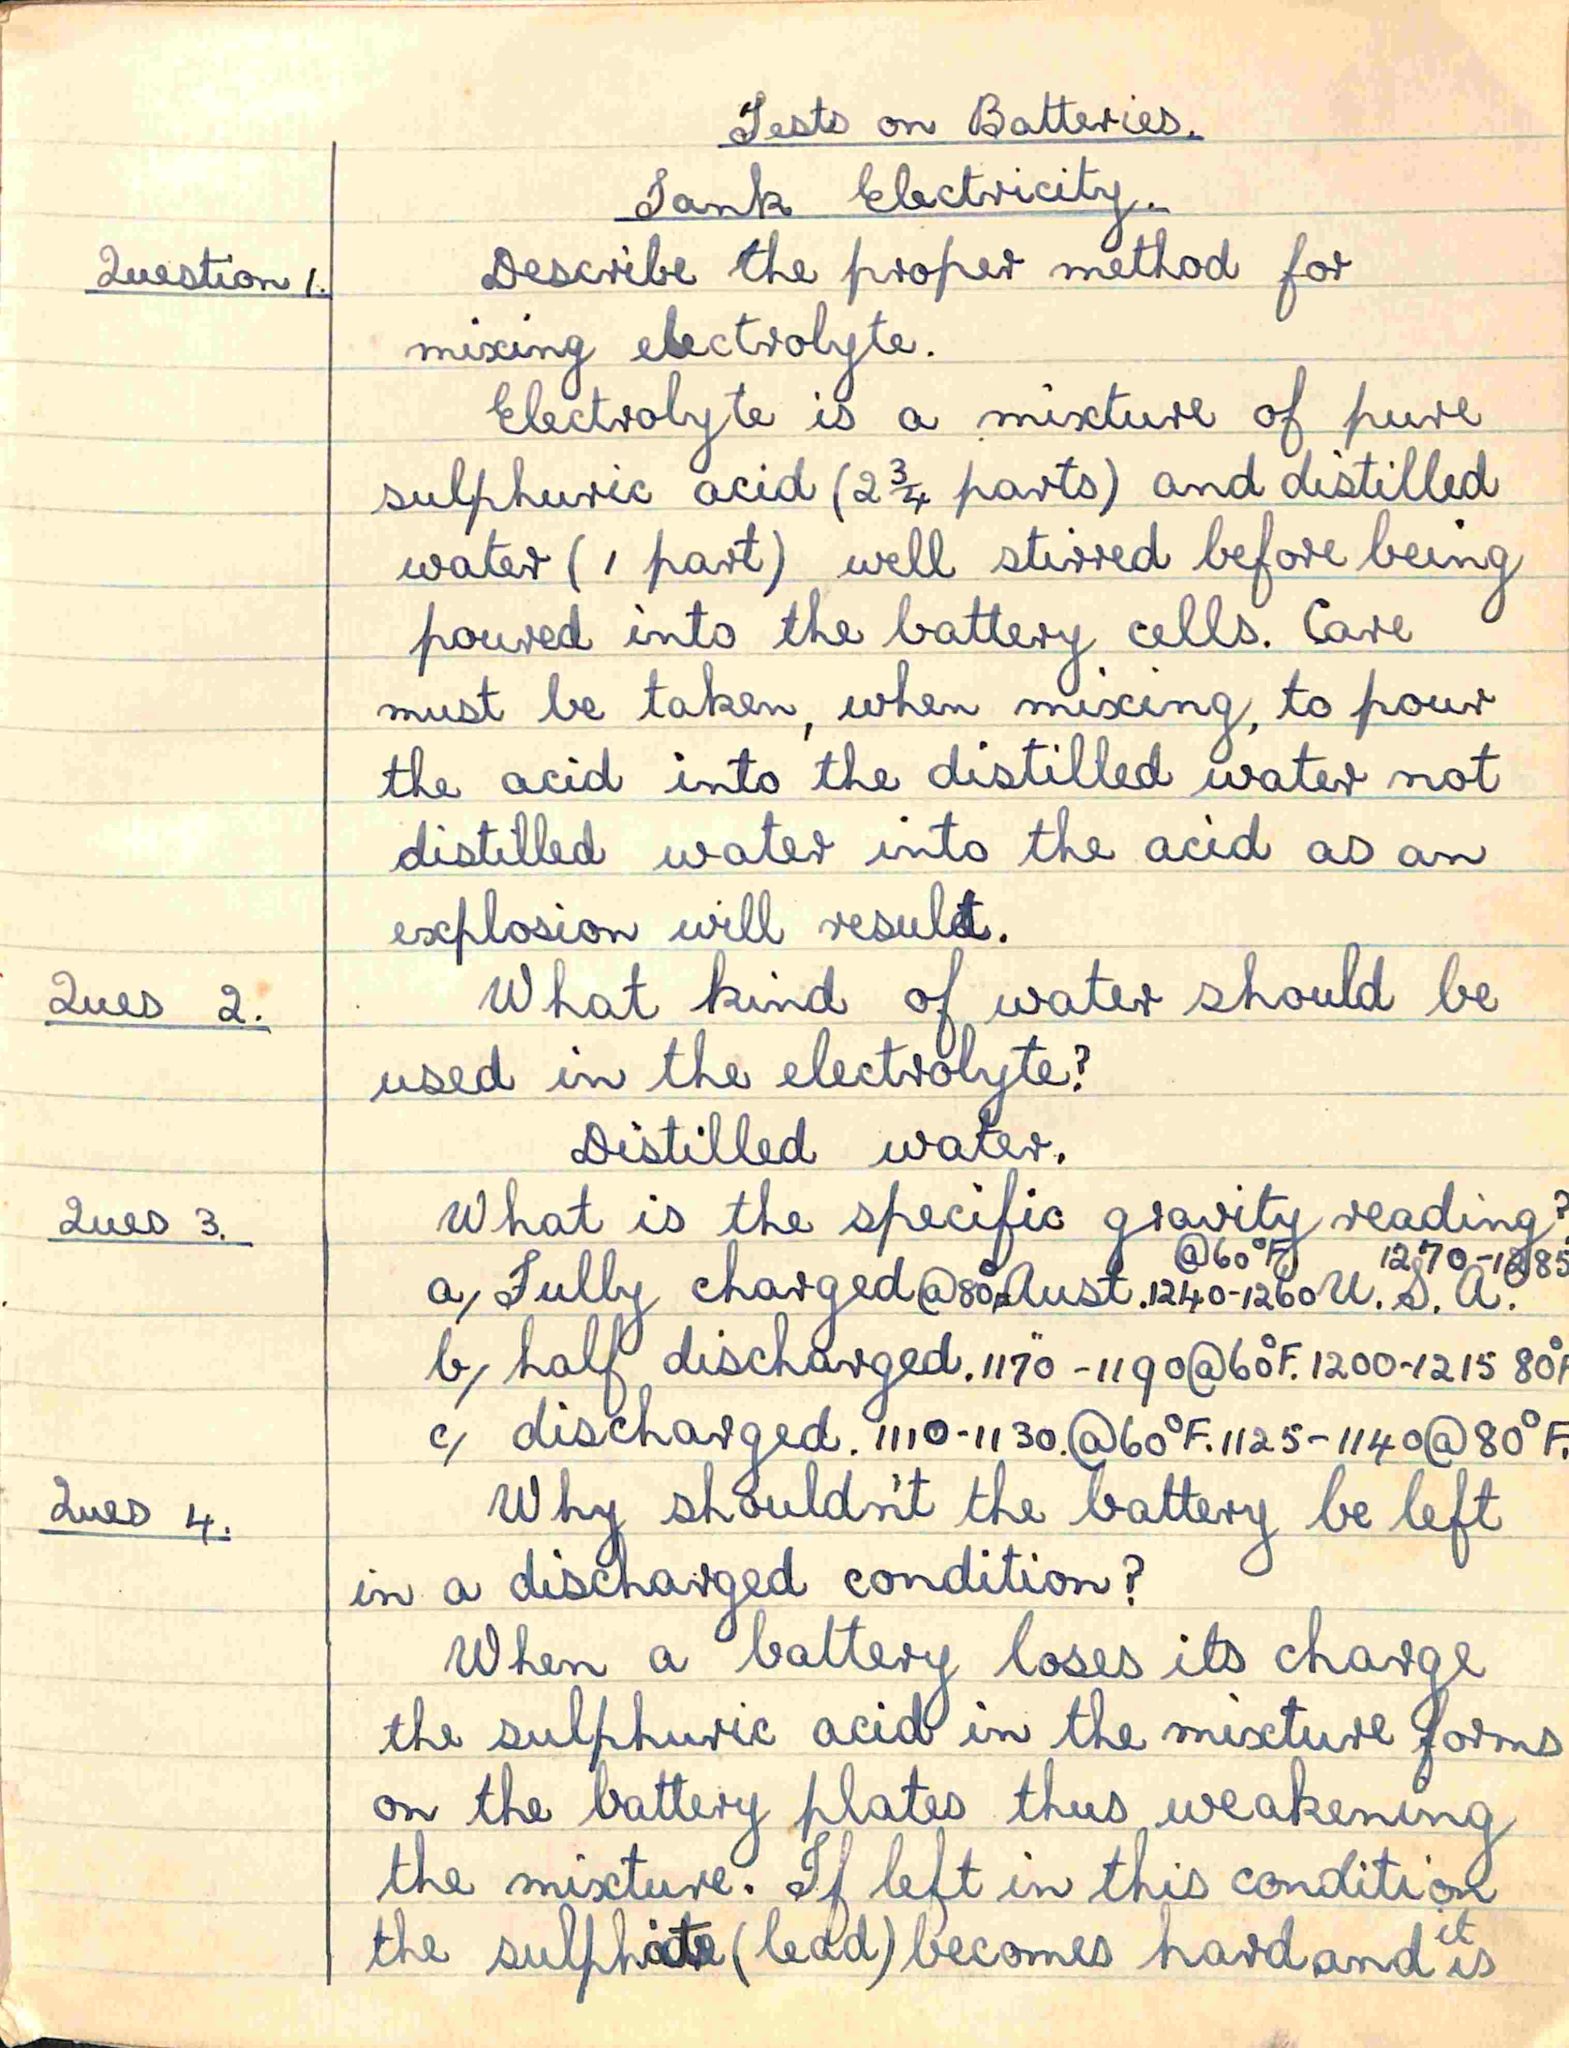 Tests on Batteries.
Tank Electricity.
Question 1. Describe the proper method for
mixing electrolyte.
Electrolyte is a mixture of pure
sulphuric acid (2 3/4 parts) and distilled
water (1 part) well stirred before being
poured into the battery cells. Care
must be taken, when mixing, to pour
the acid into the distilled water not
distilled water into the acid as an
explosion will result.
Ques 2. What kind of water should be
used in the electrolyte?
Distilled water.
Ques 3. What is the specific gravity reading?
@60°F. 1270-1285
a, Fully charged @80° Aust. 1240-1260 U.S.A.
b, half discharged. 1170-1190@60°F. 1200-1215 80°F
c, discharged. 1110-1130.@60°F. 1125-1140@80°F.
Ques 4. Why shouldn't the battery be left
in a discharged condition?
When a battery loses its charge
the sulphuric acid in the mixture forms
on the battery plates thus weakening
the mixture. If left in this condition
the sulphate (lead) becomes hard and it is